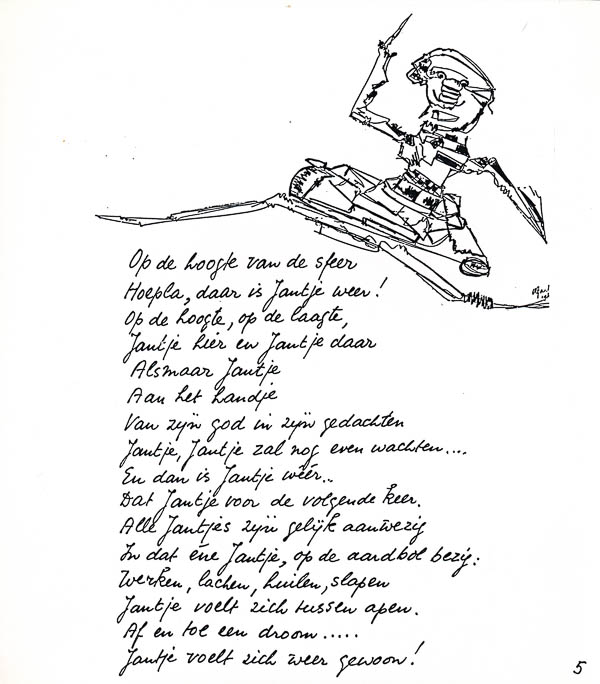 Op de hoogte van de sfeer
Hoepla, daar is Jantje weer!
Op de hoogte, op de laagte,
Jantje hier en Jantje daar
Alsmaar Jantje
Aan het handje
Van zijn god in zijn gedachten
Jantje, Jantje zal nog even wachten....
En dan is Jantje wéér..
Dat Jantje voor de volgende keer.
Alle Jantjes zijn gelijk aanwezig
In dat éne Jantje, op de aardbol bezig:
Werken, lachen, huilen, slapen
Jantje voelt zich tussen apen.
Af en toe een droom.....
Jantje voelt zich weer gewoon!
5